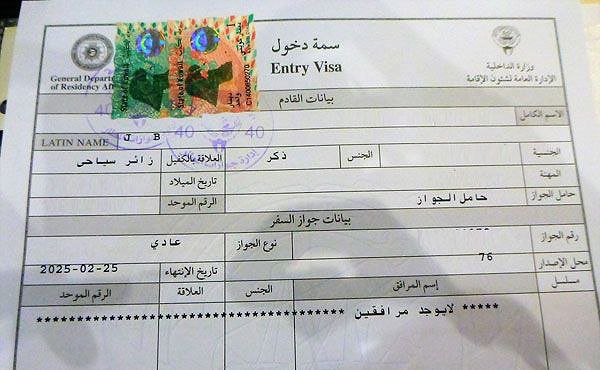 سمة دخول
Entry Visa
وزارة الداخلية
الإدارة العامة لشئون الإقامة
General Depart
of Residency Aff
State of Kuwait
State of Kuwait
بيانات القادم
الاسم الكامل
LATIN NAME J B
40 40 40
الجنسية الجنس ذكر العلاقة بالكفيل زائر سياحي
المهنة تاريخ الميلاد
حامل الجواز حامل الجواز الرقم الموحد
بيانات جواز السفر
رقم الجواز نوع الجواز عادي
محل الإصدار 76 تاريخ الإنتهاء 2025-02-25
مسلسل إسم المرافق الجنس العلاقة الرقم الموحد
***** لايوجد مرافقين ***********************************